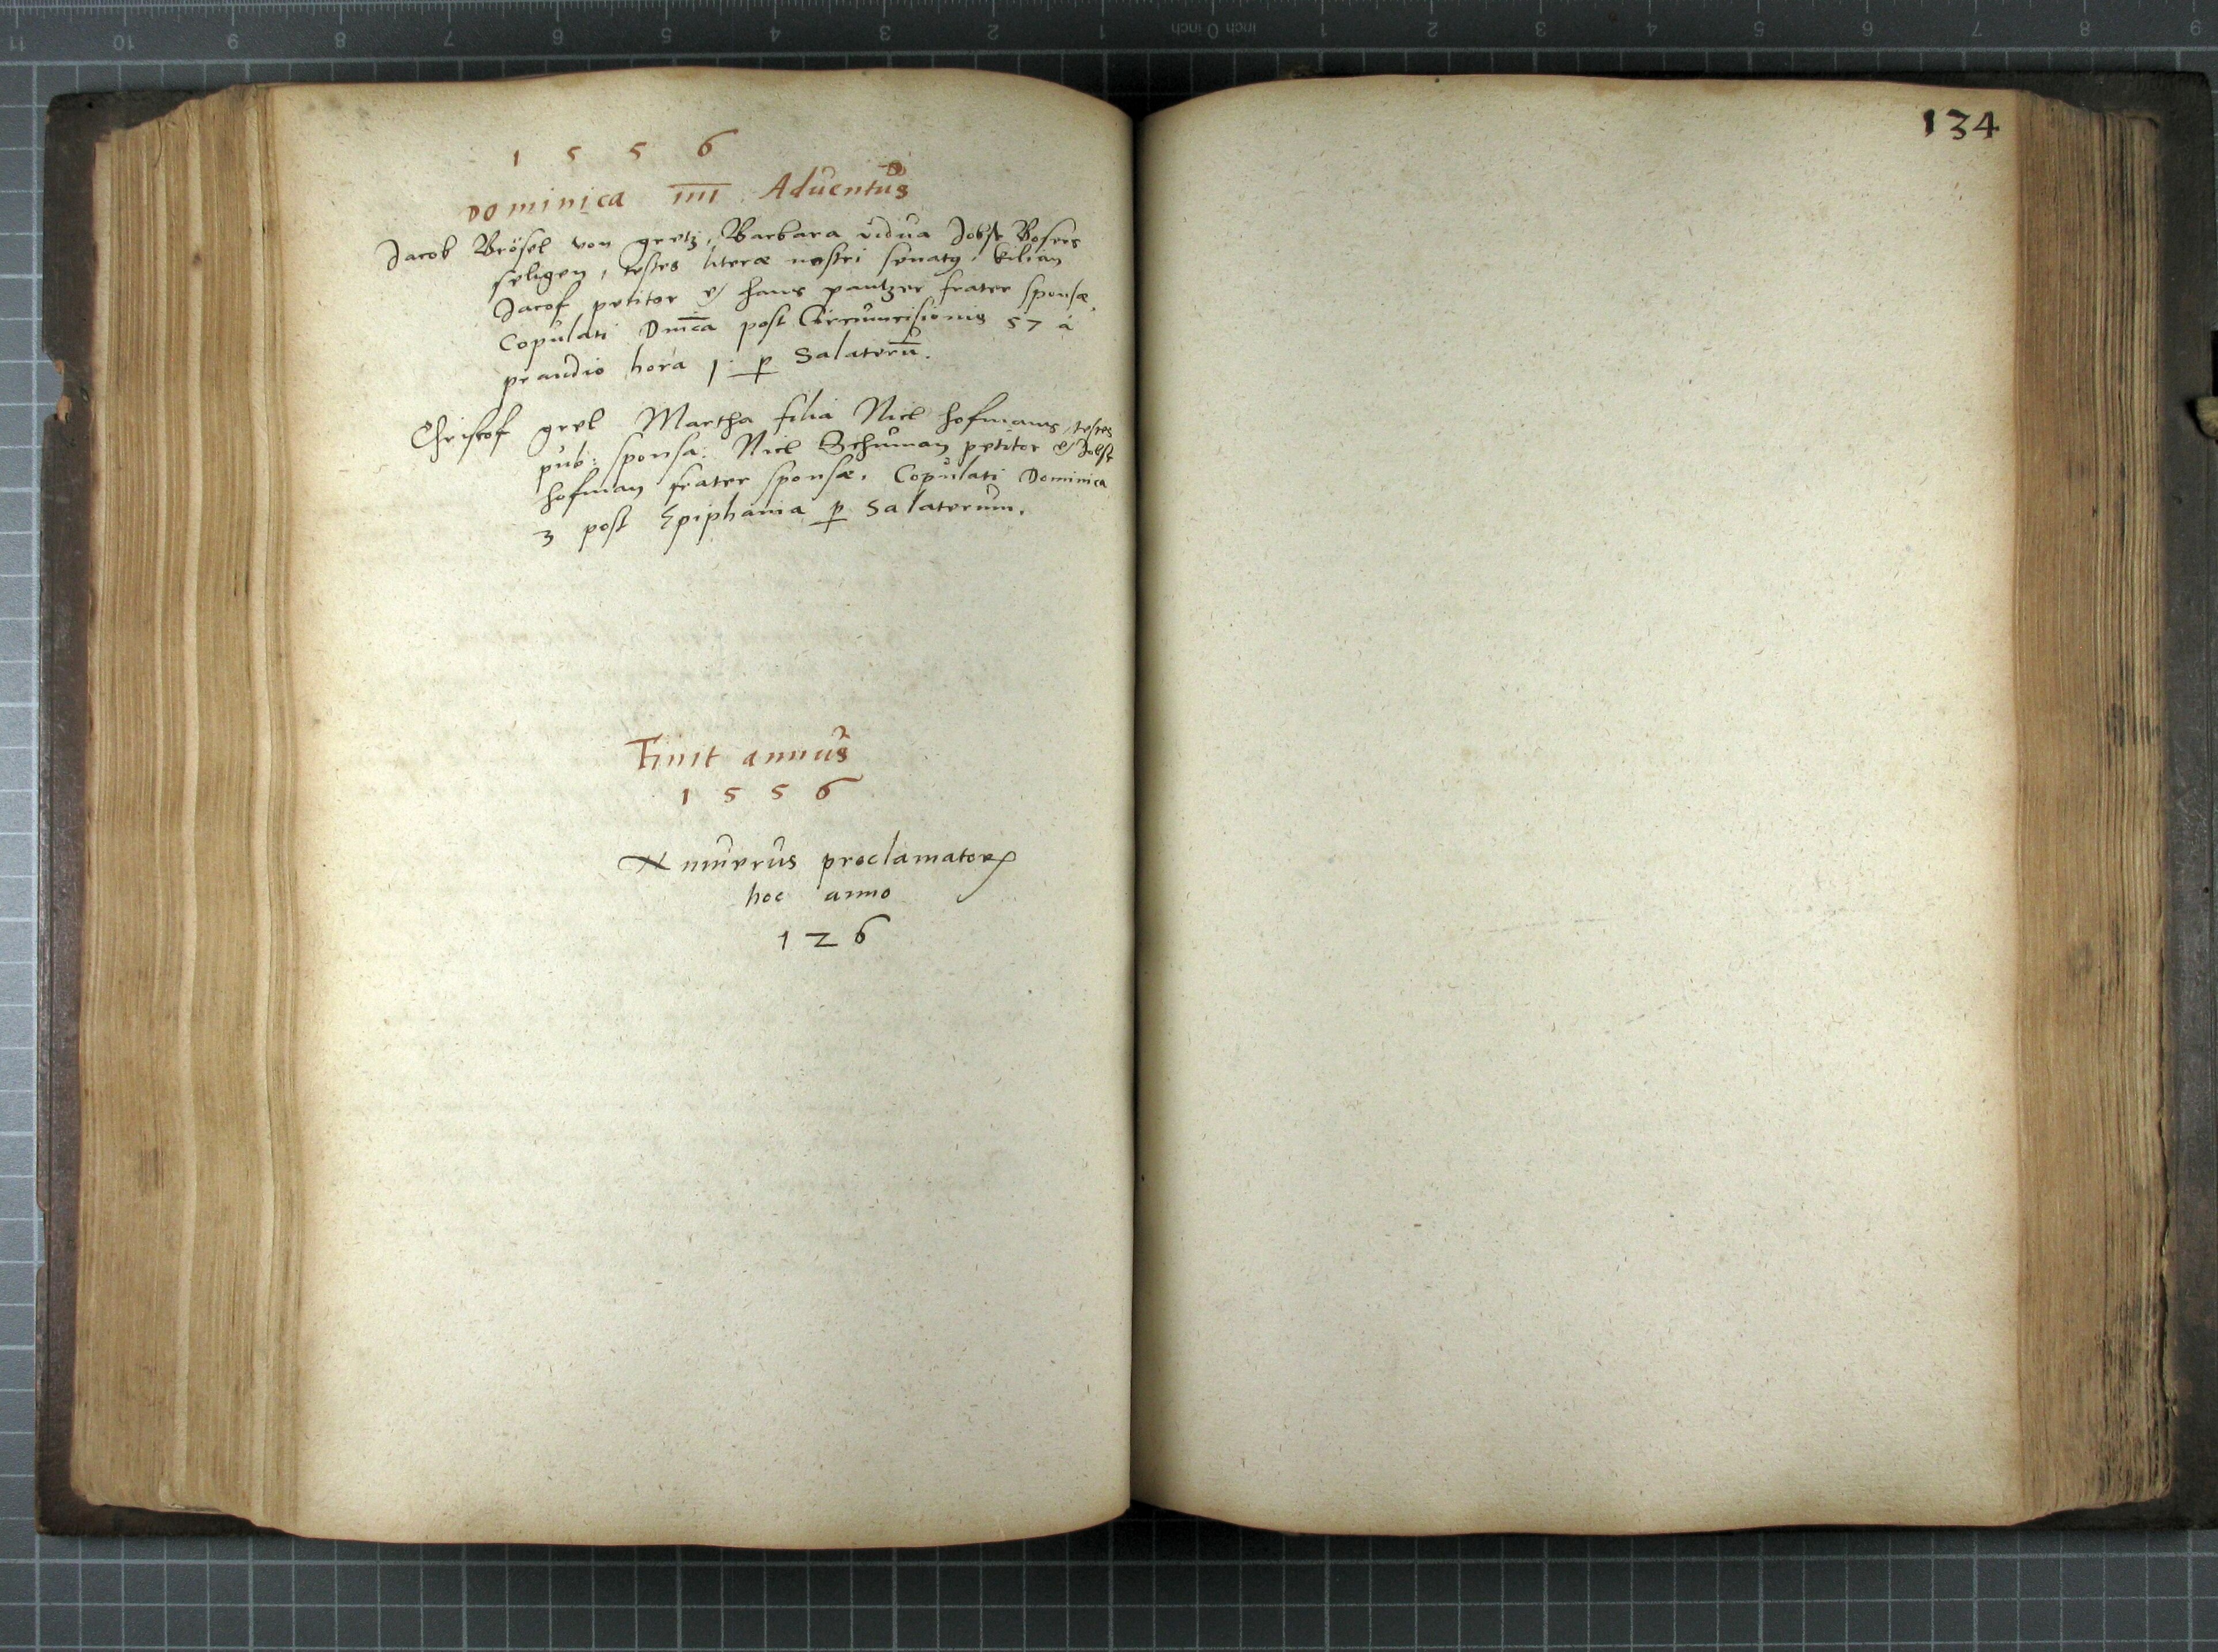 1 5 5 6
Dominica IIII Aduentus
Jacob Brösel von gretz, Barbara vidua Jobst Bosers
seligen, testes literæ nostri senatus, Kilian
Jacof petitor & hans pantzer frater sponsæ,
Copulati Dnica post Circumcisionis 57 à
prandio hora 1. p Salaterū.
Christof grel Martha filia Nicl hofmans, testes
pub: sponsa: Nicl Schuman petitor & Jobst
hofman frater sponsæ. Copulati Dominica
3 post Epiphania p Salaterum.
Finit annus
1 5 5 6
Numerus proclamatorꝝ
hoc anno
1 2 6
134